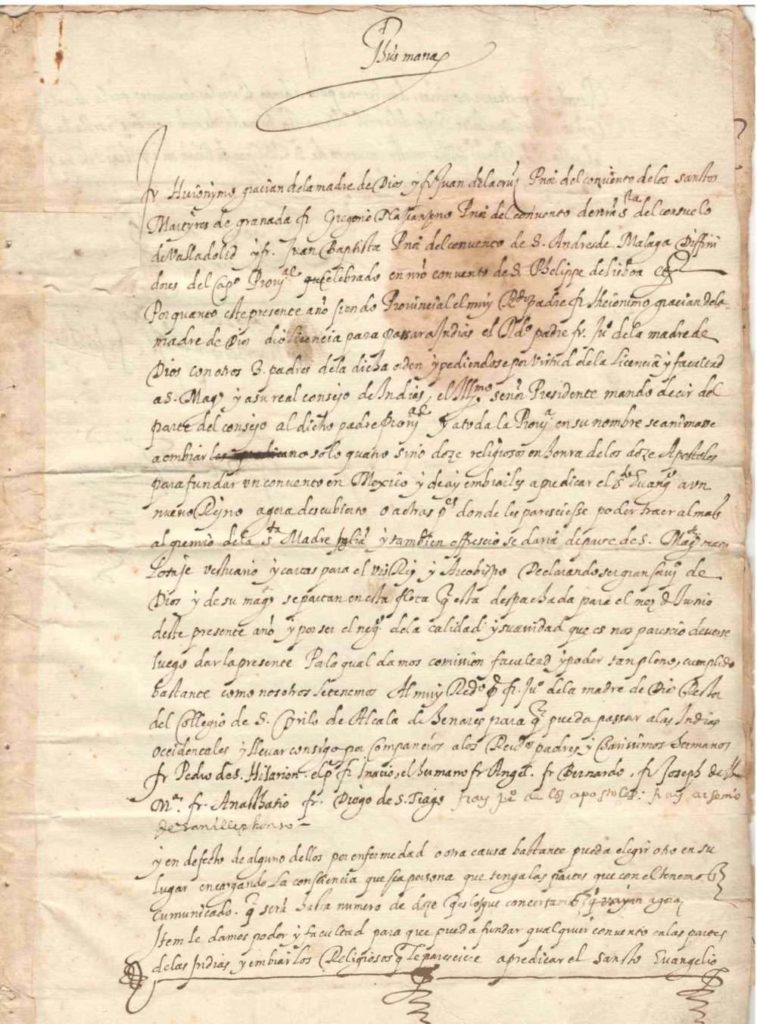 Jhus maria
fr Hieronymo gracian de la madre de Dios y fr Juan de la cruz Prior del convento de los sanctos
Martyres de granada fr Gregorio Prior del convento de nra sª del consuelo
de Valladolid y fr. Juan Baptista Prior del convento de S. Andres de Malaga Diffini
dores del capº Provªl celebrado en nrô convento de S. Phelippe de lisboa
Por quanto este presente año siendo Provincial el muy Rdo padre fr Hieronimo gracian de la
madre de Dios dio licencia para passar a Indias el padre fr. Juº de la madre de
Dios con otros 3. padres de la dicha orden y pidiendose por virtud de la Licencia y facultad
a S. Magᵈ y a su real consejo de Indias, el Illmo señor Presidente mando decir del
parte del consejo al dicho padre Proviªl y a toda la Provª en su nombre se animase
a embiar solo quatro sino doze religiosos en honra de los doze Apostoles
para fundar un convento en Mexico y de ay embialles a predicar el Stº Evangº a un
nuevo Reyno agora descubierto o a otras pᵉˢ donde les paresciesse poder traer almas
al gremio de la Sᵗª Madre yglia y tambien offrescio se daria de parte de S. Magᵈ
vestuario y cartas para el VisRey y Arcobispo Declarando ser gran servº de
Dios y de su magᵈ se partan en esta flota q esta despachada para el mes de Junio
deste presente año y por ser el negº de la calidad y que es nos parescio deverse
luego dar la presente Pa lo qual damos comission facultad y poder tan pleno, cumplido
bastante como nosotros le tenemos Al muy Redº pe fr. Juº de la madre de Dios Rector
del Collegio de S. Cyrilo de Alcala de henares para q pueda passar a las Indias
occidentales y llevar consigo por Companeros a los Revdos padres y Carissimos hermanos
fr Pedro de S. Hilarion. el pe fr Inacio, el hermano fr Angel. fr Bernardo, fr Joseph de Jhs
Mª. fr. Anasthasio fr. Diego de S. Tiago fray juº de los apostoles. fray arsenio
de san illephonso
y en defecto de alguno dellos por enfermedad o otra causa bastante pueda elegir otro en su
lugar encargando La consciencia que sea persona que tenga las partes que con el tenemos
comunicado. q sera hasta numero de doze q es los que concertamos q vayan agora
Item le damos poder y facultad para que pueda fundar qualquier convento en las partes
de las Indias, y embiar los Religiosos q le paresciere a predicar el sancto Evangelio